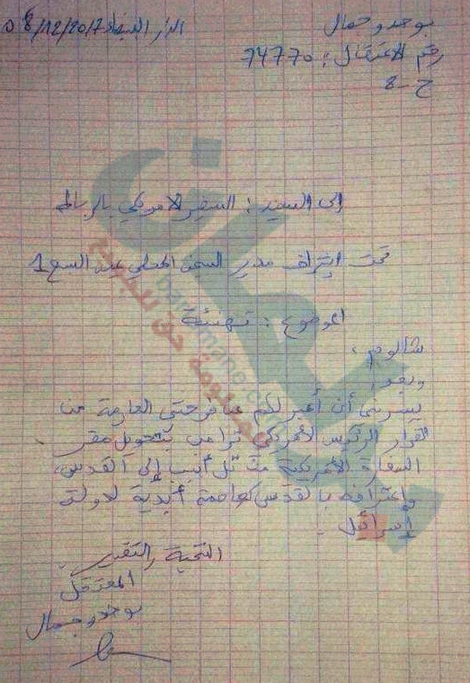 بوجدو جمال
الدار البيضاء 08/12/2017
رقم الاعتقال: 74770
ح - 8
إلى السيد: السفير الأمريكي بالرباط
تحت إشراف مدير السجن المحلي عين السبع 1
الموضوع: تهنئة
شالوم،
وبعد:
يسرني أن أعبر لكم عن فرحتي العارمة من
القرار الرئيس الأمريكي ترامب بتحويل مقر
السفارة الأمريكية من تل أبيب إلى القدس،
واعترافه بالقدس كعاصمة أبدية لدولتي
إسرائيل.
التحية والتقدير.
المعتقل
بوجدو جمال
barlamane.com
المعلومة حق للجميع